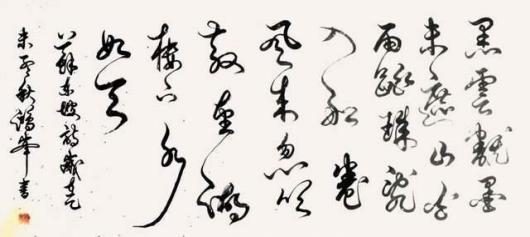 黑雲翻墨
未遮山白
雨跳珠亂
入船卷
風來忽吹
散望湖
樓下水
如天
蘇東坡詩歲在乙
未秋書